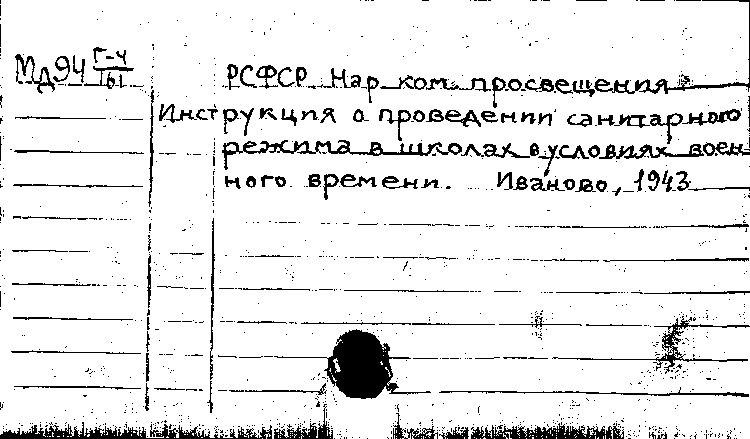 Мд94 Г-4/161
РСФСР Нар. ком. просвещения
Инструкция о проведении санитарного
режима в школах в условиях воен-
ного времени. Иваново, 1943